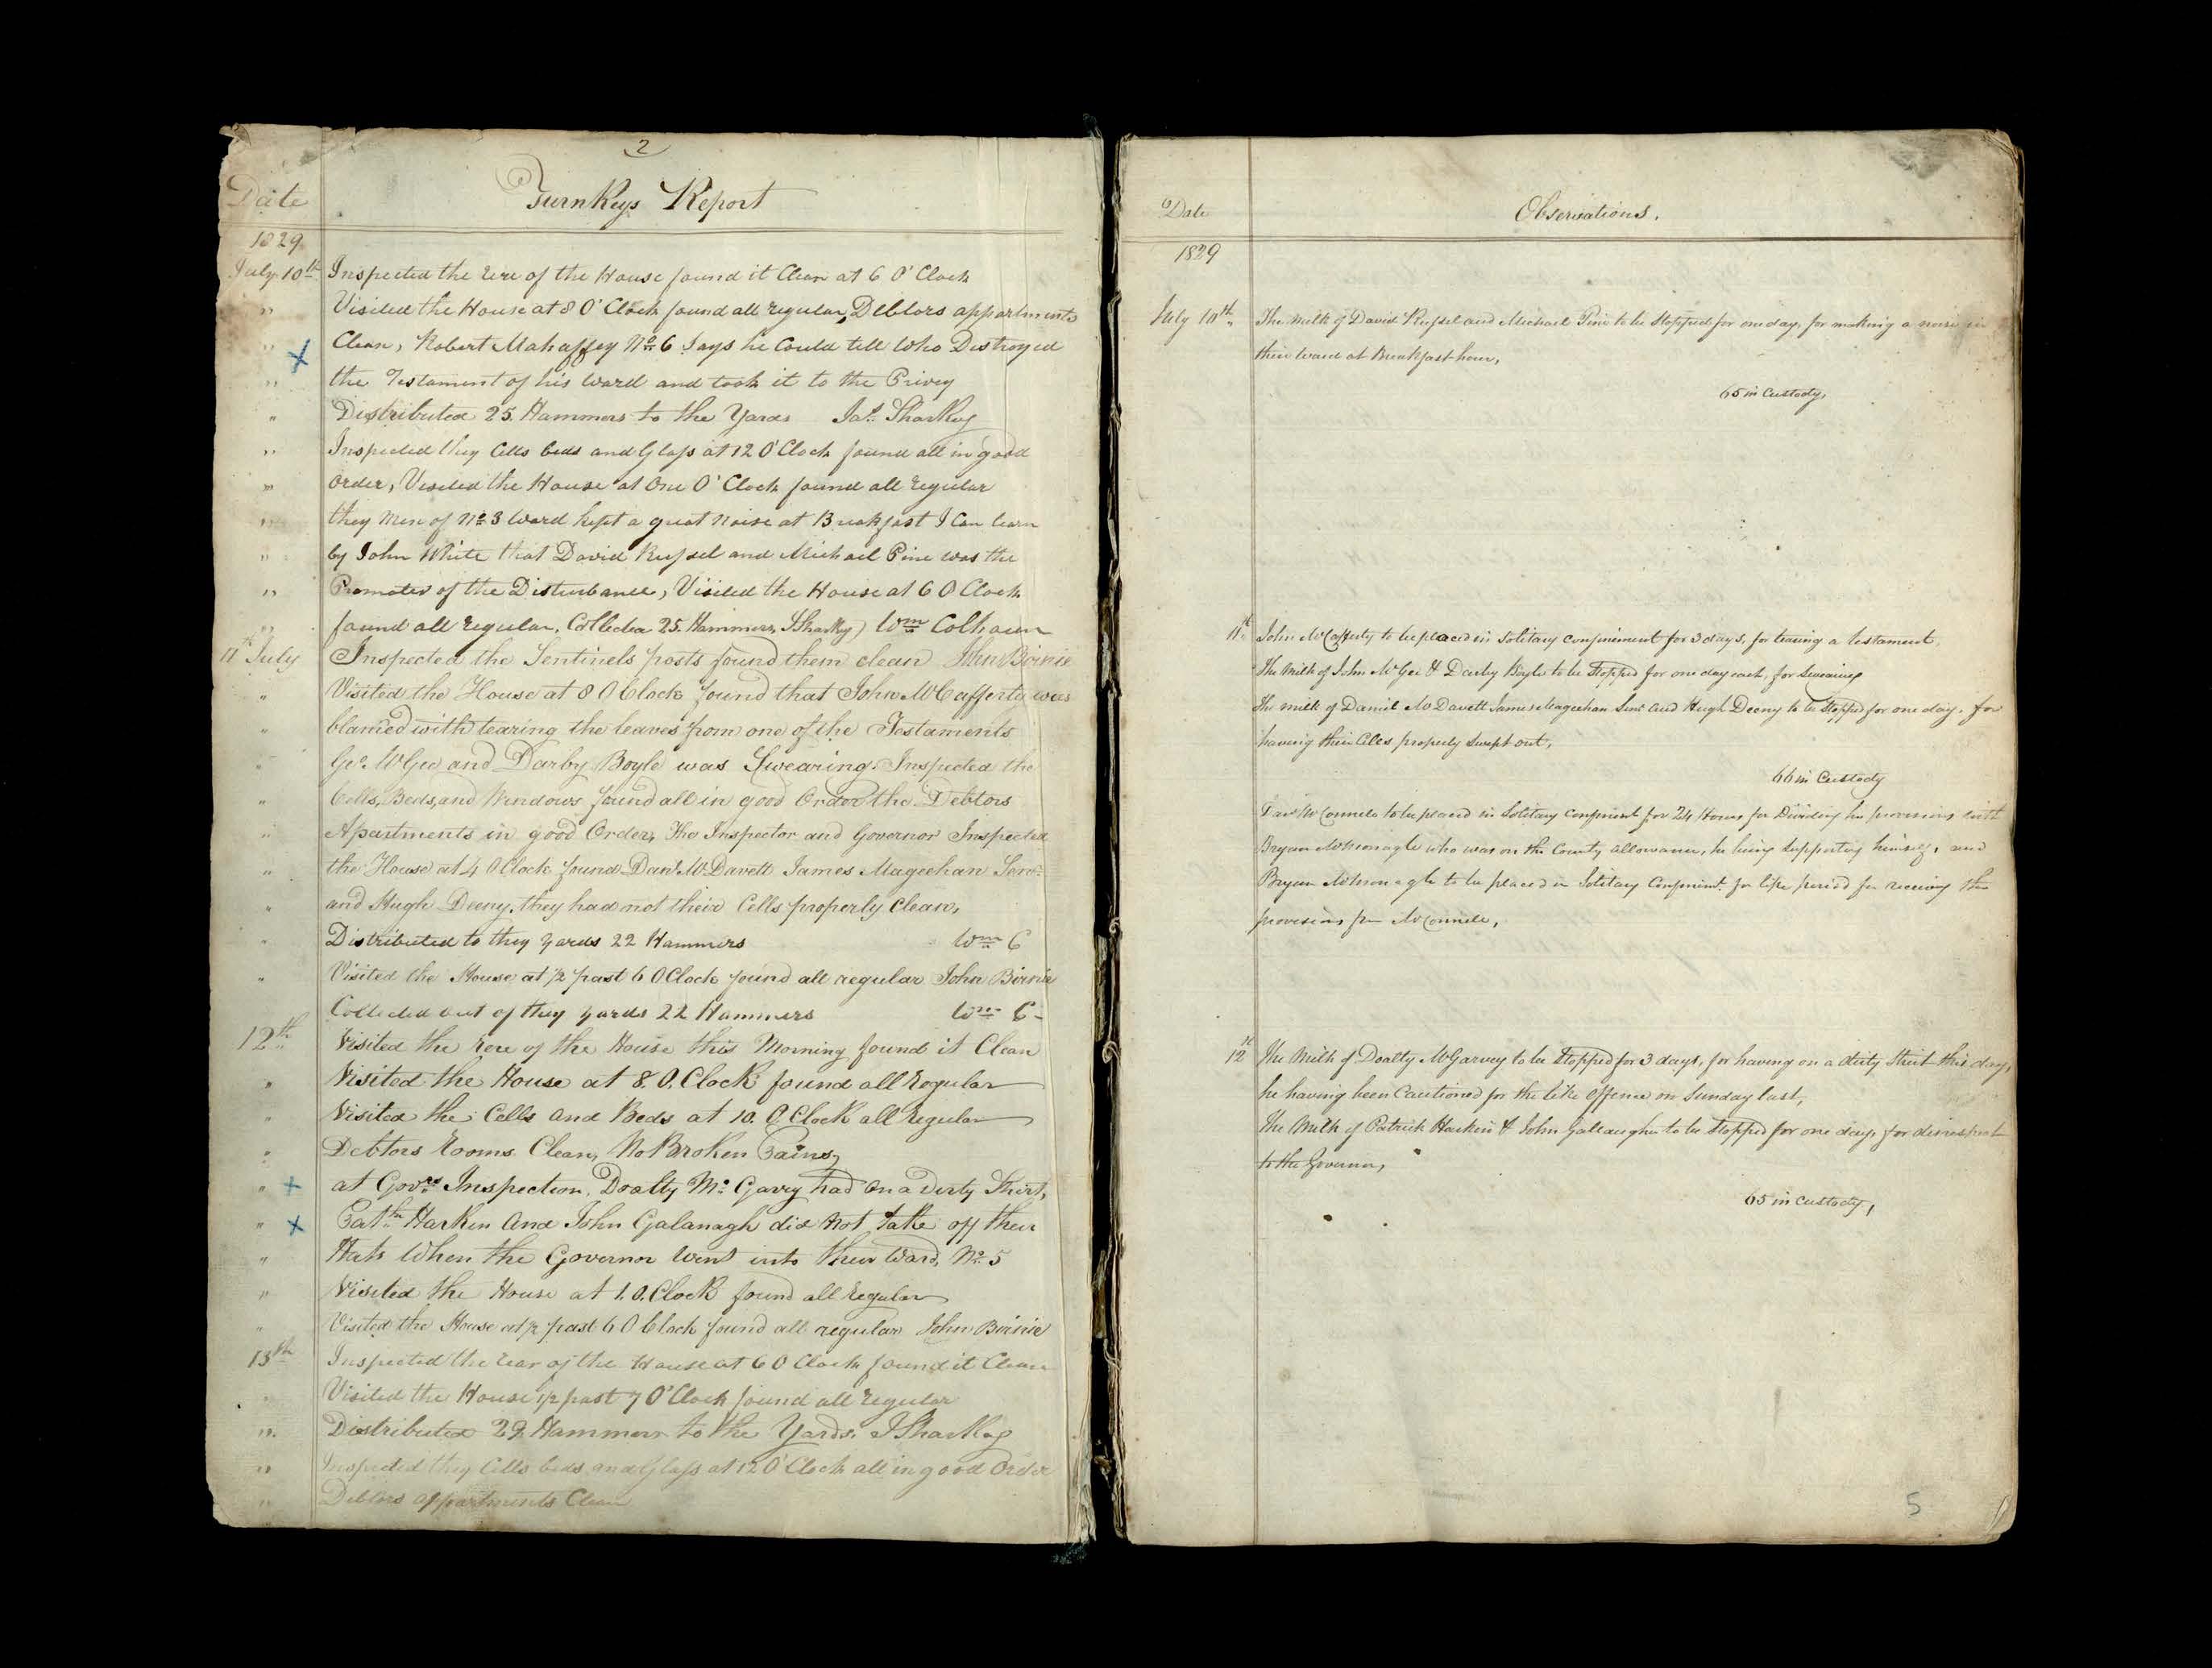 2
Date
Turnkeys Report
1829
July 10th Inspected the rere of the House found it Clean at 6 O'Clock
" Visited the House at 8 O'Clock found all regular, Debtors appartments
" Clean, Robert Mahaffey No 6 Says he Could tell who Destroyed
" the Testament of his ward and took it to the Privey
" Distributed 25 Hammers to the Yards Jas. Sharkey
" Inspected they Cells beds and Glass at 12 O'Clock found all in good
" order, Visited the House at One O'Clock found all regular
" they Men of No 3 ward kept a great noise at Breakfast I Can learn
" by John White that David Russel and Michael Pine was the
" Promoter of the Disturbance, Visited the House at 6 O Clock
" found all regular, Collected 25 Hammers, JSharkey) Wm Colhoun
11th July Inspected the Sentinels posts found them clean John Birnie
" Visited the House at 8 O Clock found that John McCafferty was
" blamed with tearing the leaves from one of the Testaments
" Geo. McGee and Darby Boyle was Swearing. Inspected the
" Cells, Beds, and Windows found all in good Order the Debtors
" Apartments in good Order, The Inspector and Governor Inspected
" the House at 4 O Clock found Danl. McDavett James Mageehan Senr.
" and Hugh Deeny, they had not their Cells properly Clean,
" Distributed to they yards 22 Hammers Wm C
" Visited the House at 1/2 past 6 O Clock found all regular John Birnie
Collected out of they yards 22 Hammers Wm C-
12th Visited the rere of the House this Morning found it Clean
" Visited the House at 8. O. Clock found all Regular
" Visited the Cells and Beds at 10. O Clock all Regular
" Debtors Rooms Clean, No Broken Pains,
" at Govrs. Inspection, Doalty Mc Garvy had on a Dirty Shirt,
" Harken And John Galanagh did Not take off their
" Hats When the Governor Went into their Ward, No 5
" Visited the House at 1. O. Clock found all Regular
" Visited the House at 1/2 past 6 O Clock found all regular John Birnie
13th Inspected the rear of the House at 6 O Clock found it Clean
" Visited the House 1/2 past 7 O'Clock found all regular
" Distributed 29 Hammers to the Yards. JSharkey
" Inspected they Cells beds and Glass at 12 O'Clock all in good Order
" Debtors appartments Clean
Date
Observations.
1829
July 10th The milk of David Russel and Michael Pine to be Stopped for one day, for making a noise in
their ward at Breakfast hour,
65 in Custody,
11th John McCafferty to be placed in Solitary confinement for 3 days, for tearing a testament,
The Milk of John McGee & Darby Boyle to be Stopped for one day each, for Swearing
The milk of Daniel McDavett James Mageehan Senr. and Hugh Deeny to be Stopped for one day, for
having their Cells properly Swept out,
66 in Custody
McConnele to be placed in Solitary confinmt for 24 Hours for Dividing his provisions with
Bryan McMonagle who was on the County allowance, he being Supporting himself, and
Bryan McMonagle to be placed in Solitary Confinmt. for like period for receiving the
provisions from McConnele,
12th The Milk of Doalty McGarvey to be Stopped for 3 days, for having on a dirty Shirt this day,
he having been Cautioned for the like offence on Sunday last,
The Milk of Patrick Harkin & John Gallaugher to be Stopped for one day, for disrespect
to the Governor,
65 in Custody,
5